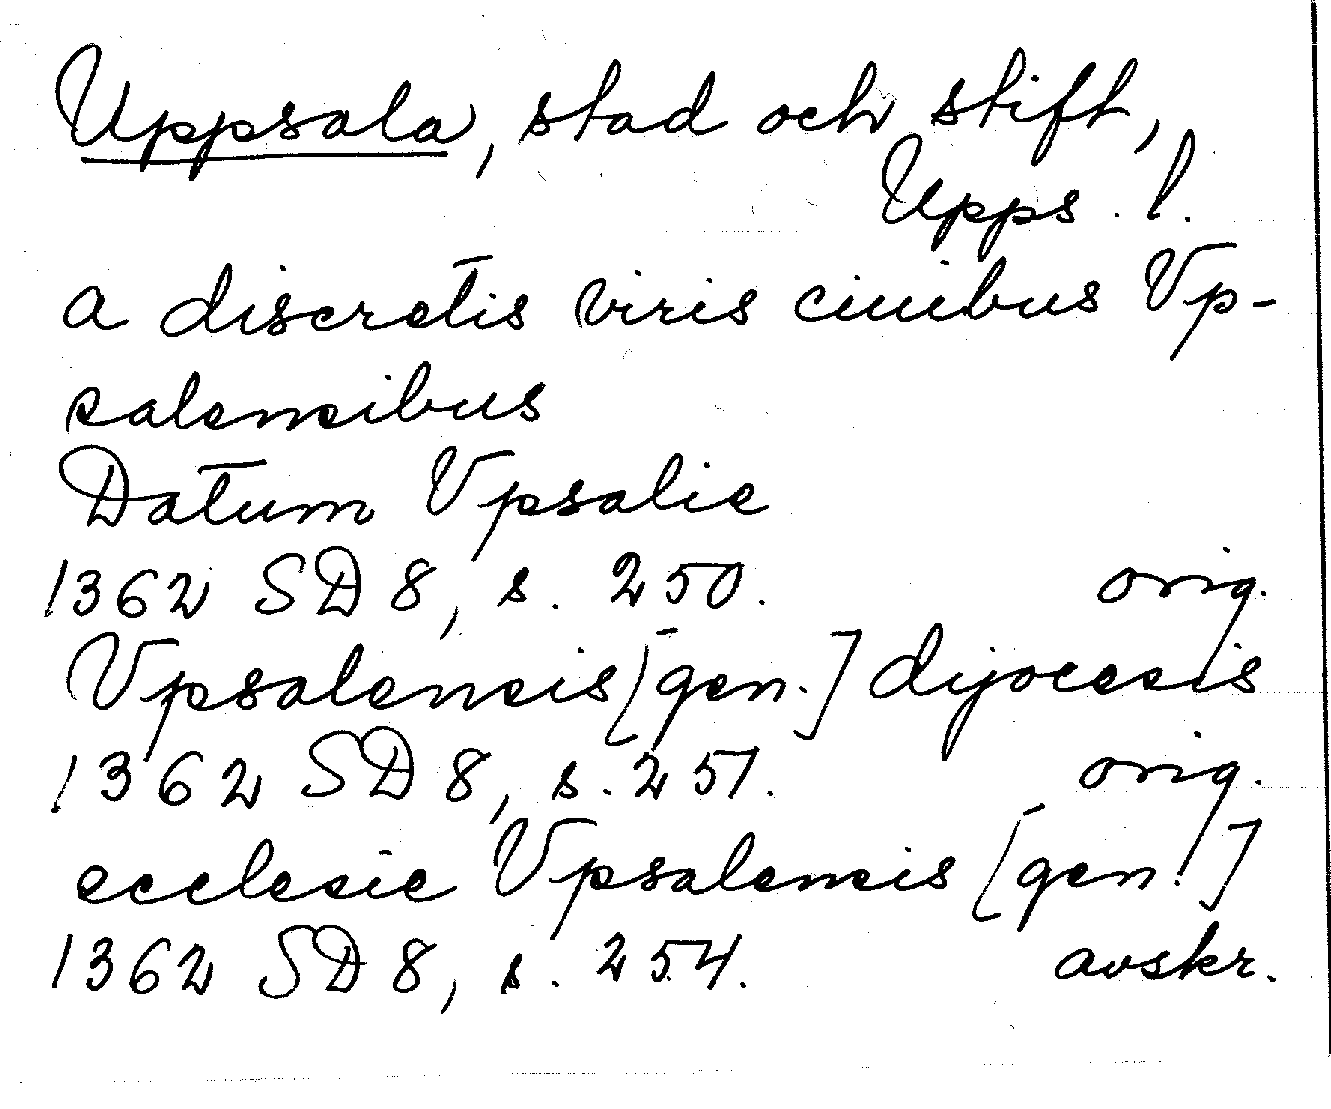 Uppsala, stad och stift,
Upps. l.
a discretis viris ciuibus Vp-
salensibus
Datum Vpsalie
1362 SD 8, s. 250. orig.
Vpsalensis [gen.] dyocesis
1362 SD 8, s. 251. orig.
ecclesie Vpsalensis [gen.]
1362 SD 8, s. 254. avskr.